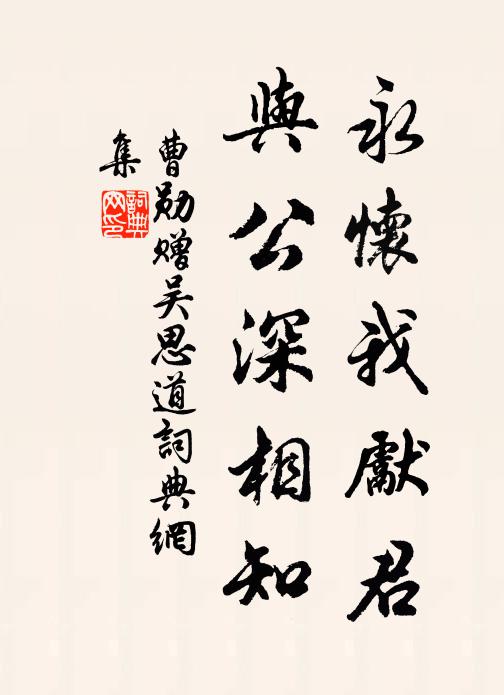 永懷我獻君
與公深相知
曹勛贈吴思道詞典網
集
詞典网印